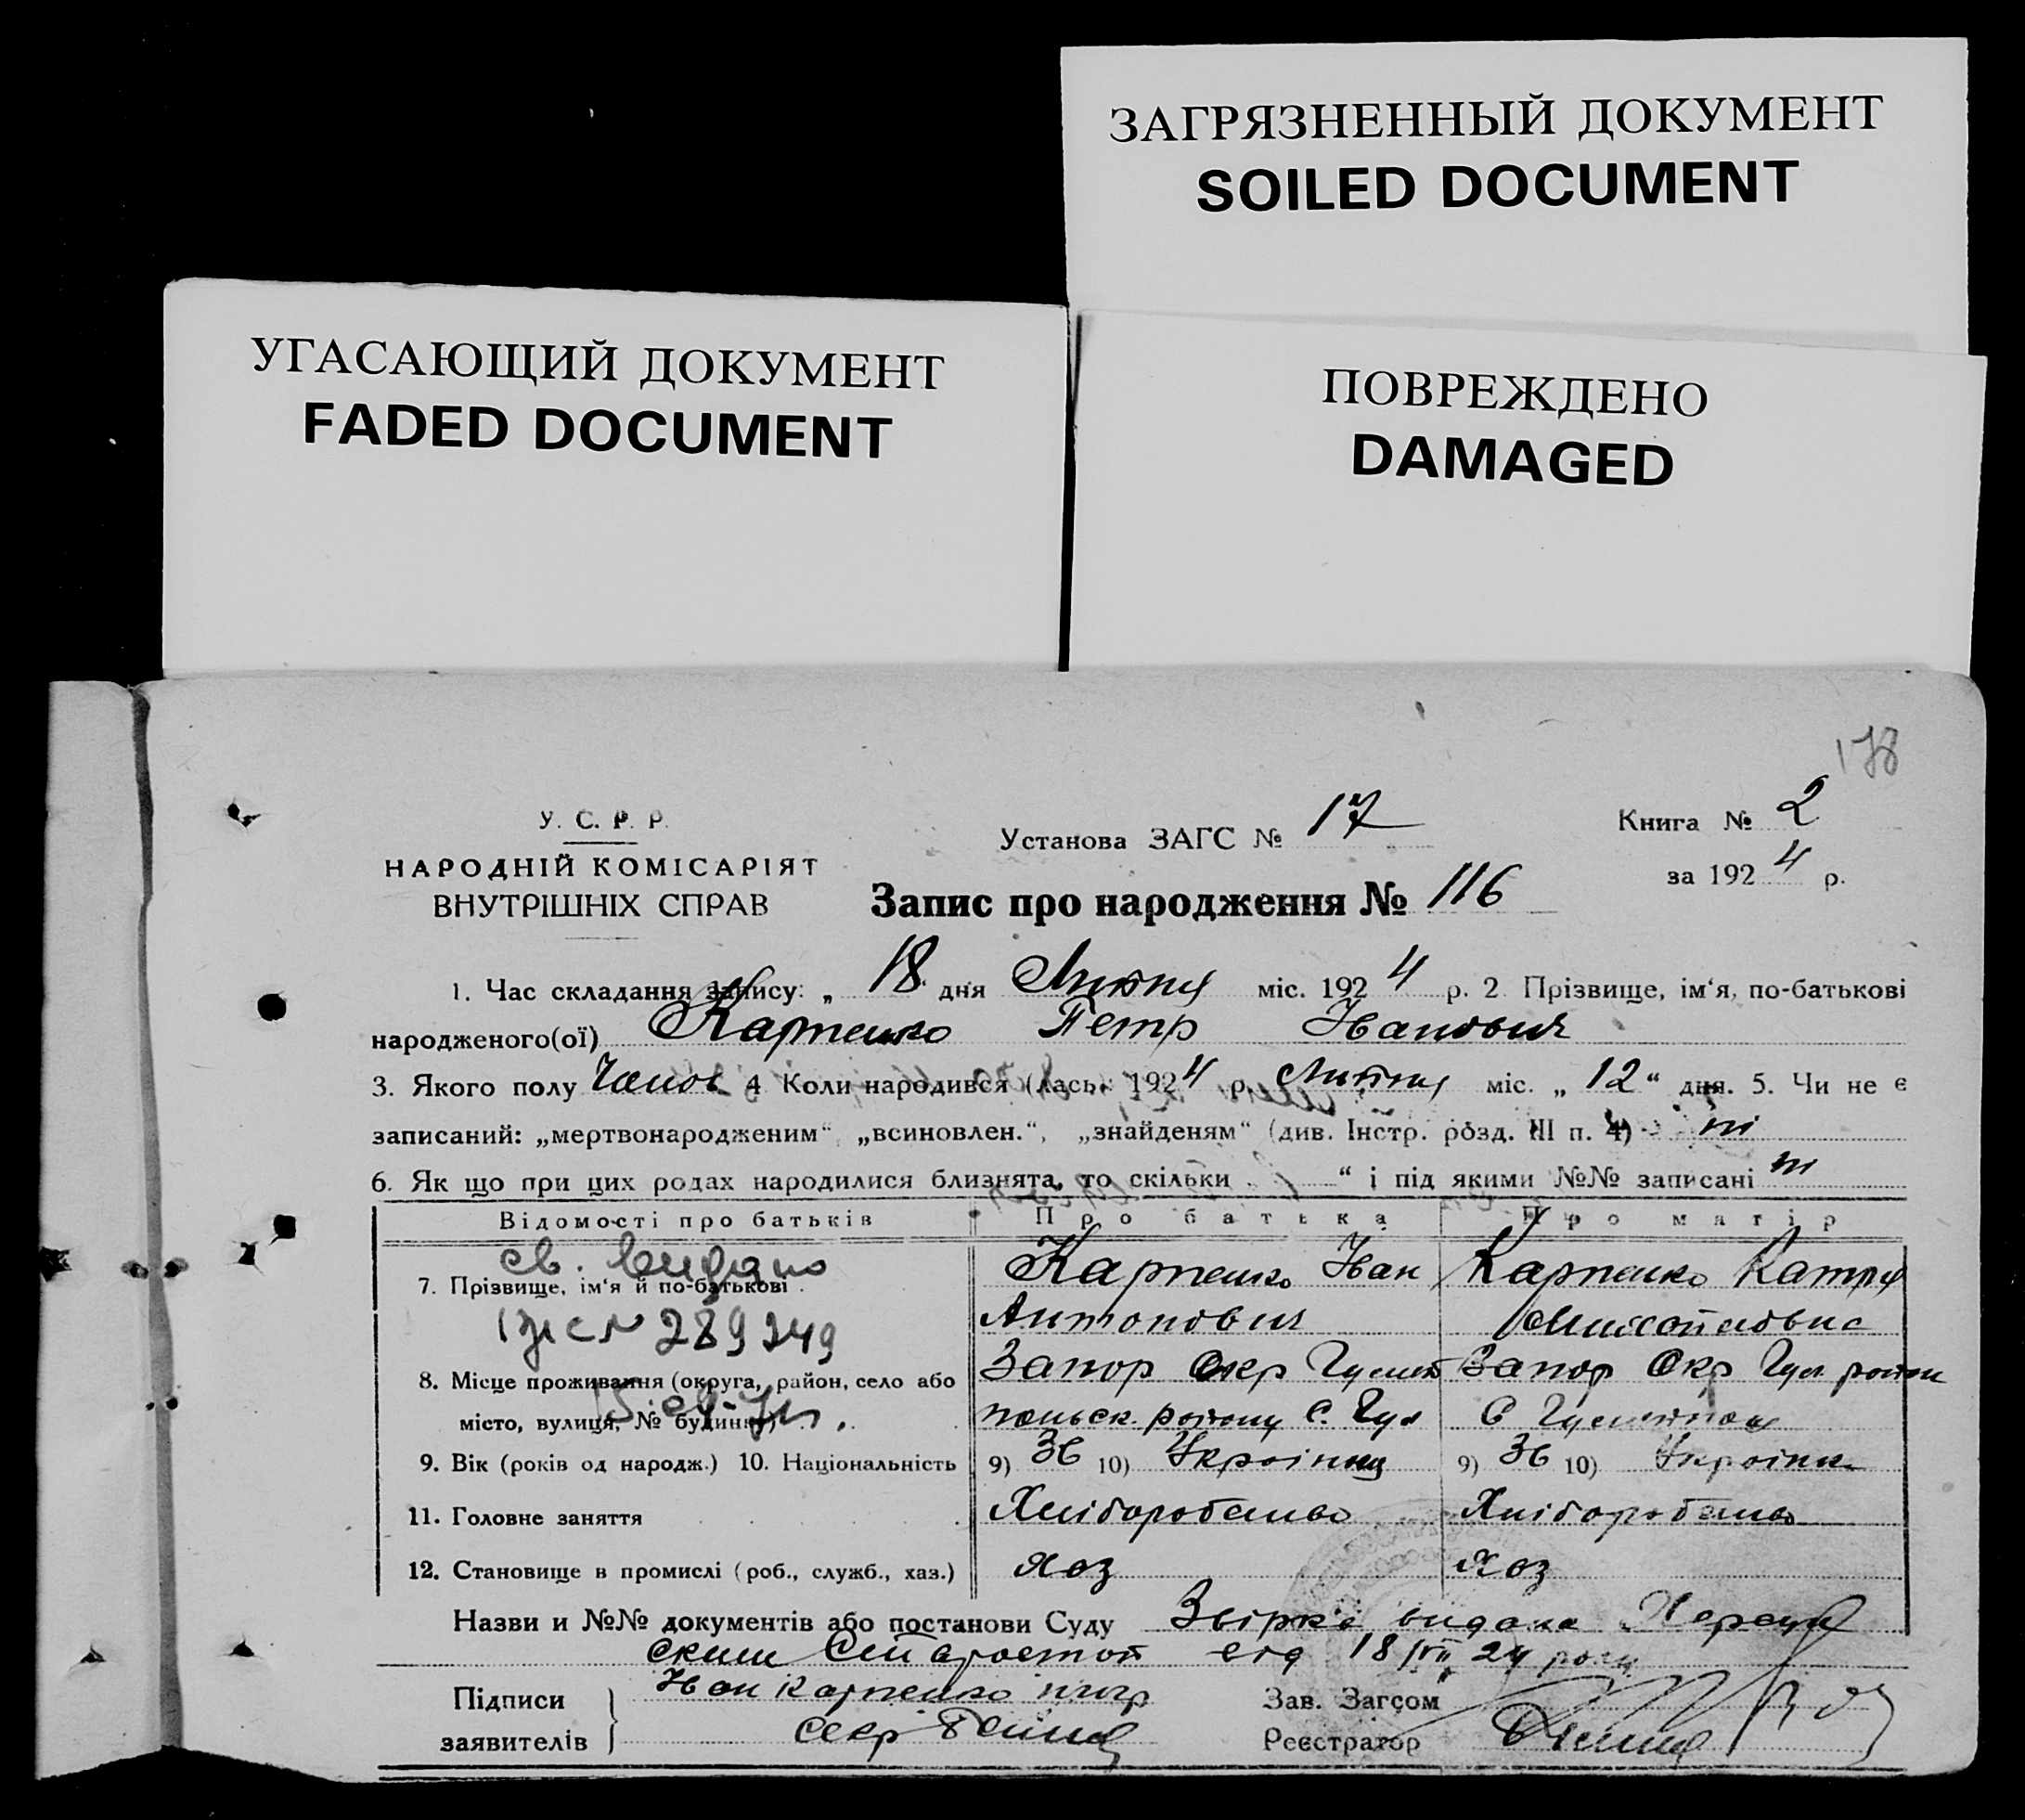 ЗАГРЯЗНЕННЫЙ ДОКУМЕНТ
SOILED DOCUMENT
УГАСАЮЩИЙ ДОКУМЕНТ
FADED DOCUMENT
ПОВРЕЖДЕНО
DAMAGED
178
У. С. Р. Р.
НАРОДНІЙ КОМІСАРІЯТ
ВНУТРІШНІХ СПРАВ
Установа ЗАГС № 17
Книга № 2
за 1924 р.
Запис про народження № 116
1. Час складання запису: „ 18 дня Липня міс. 1924 р. 2 Прізвище, ім‘я, по-батькові
народженого(ої) Карпенко Петр Іванович
3. Якого полу Чолов 4 Коли народився (лась) 1924 р. Липня міс. „ 12 “ дня. 5. Чи не є
записаний: „мертвонародженим“ „всиновлен.“, „знайденям“ (див. Інстр. розд. III п. 4) ні
6. Як що при цих родах народилися близнята, то скільки “ і під якими №№ записані ні
Відомості про батьків Про батька Про матір
св. видано
7. Прізвище, ім‘я й по-батькові Карпенко Іван Карпенко Катря
Антонович
№ 289249
8. Місце проживання (округа, район, село або Запор Окр Гуляй Запор Окр Гул район
місто, вулиця, № будинку) польск. району С. Гул С Гуляйполе
9. Вік (років од народж.) 10. Національність 9) 36 10) Українец 9) 36 10) Українка
11. Головне заняття Хліборобство Хліборобство
12. Становище в промислі (роб., служб., хаз.) Хоз Хоз
Назви и №№ документів або постанови Суду видана
18/VII 24 року
Підписи Іван Карпенко Зав. Загсом
заявителів секр Реєстратор